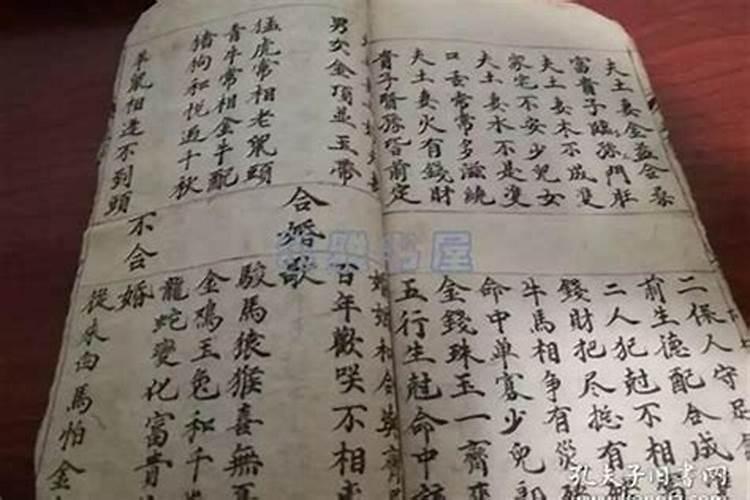 夫土妻金益合
富貴子臨孫門庄
夫土妻木不成雙
家宅不安少兒女
夫土妻水不是雙
口舌常常多滋繞
夫土妻火有錢財
貴子賢孫皆前定
二保人守足
前生德配合成
二人犯尅不相
錢財把尽挺有
牛馬相争有災
命中单寡少兒郎
金錢珠玉一齊來
五行生尅命中該
婚姻和合
男女金頂並玉帶
百年歡咲不相
合婚歌
猛虎常相老鼠頭
青牛常相金牛配
猪狗和悦過千秋
駿馬猿猴喜無
金鸡玉兔和千
龍蛇變化富貴
羊鼠相逢不到頭
不合婚
從來白馬怕金
孔夫子旧书网